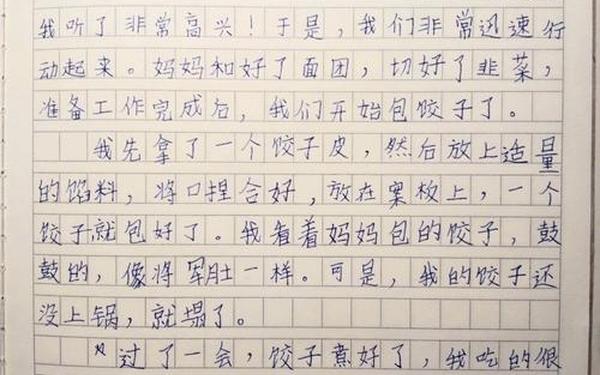 我听了非常高兴！于是，我们非常迅速行
动起来。妈妈和好了面团，切好了韭菜，
准备工作完成后，我们开始包饺子了。
我先拿了一个饺子皮，然后放上适量
的馅料，将口捏合好，放在案板上，一个
饺子就包好了。我看着妈妈包的饺子，鼓
鼓的，像将军肚一样。可是，我的饺子还
没上锅，就塌了。
过了一会，饺子煮好了，我吃的很